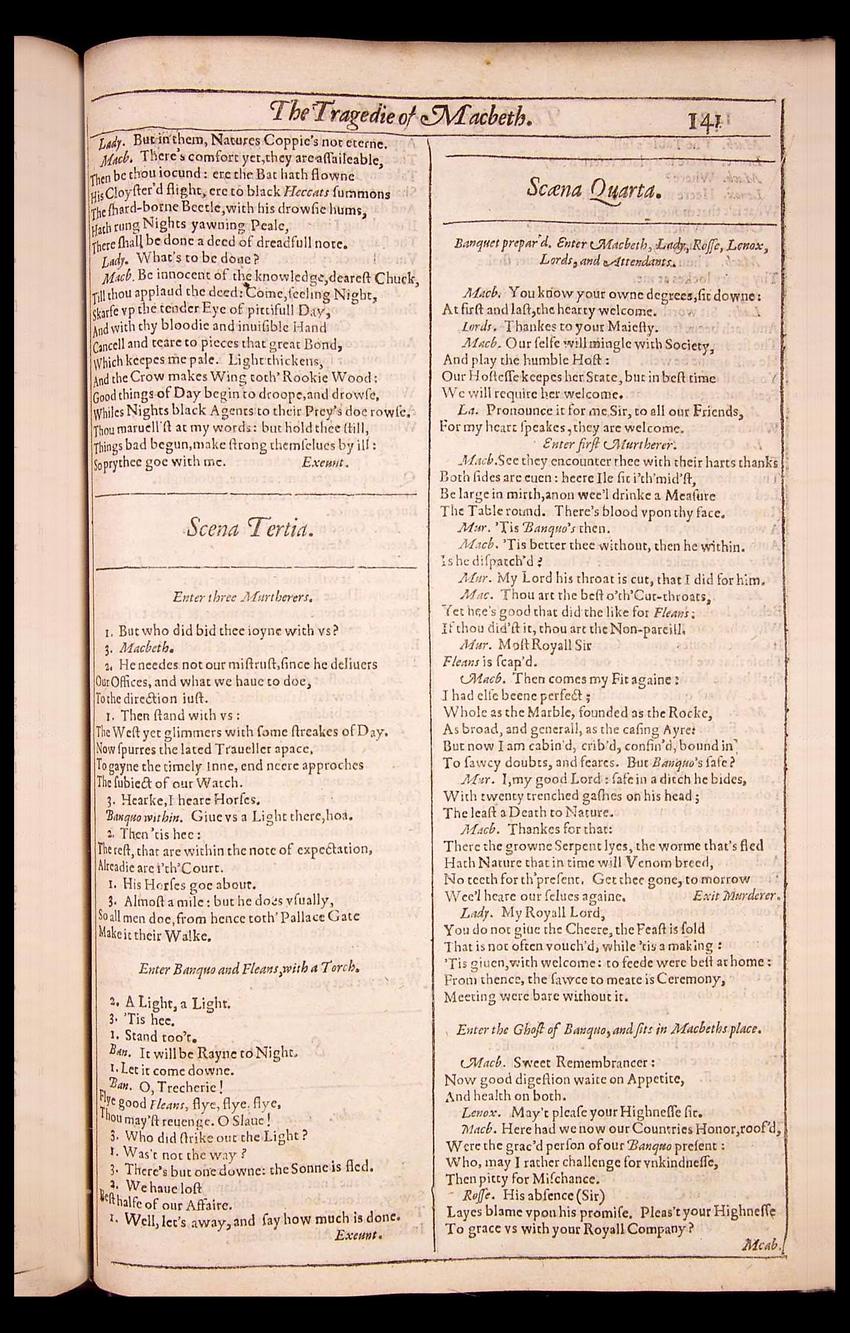 The Tragedie of Macbeth.
141
Lady. But in them, Natures Coppie's not eterne.
Macb. There's comfort yet, they are aſſaileable,
Then be thou iocund: ere the Bat hath flowne
His Cloyſter'd flight, ere to black Heccats ſummons
The ſhard-borne Beetle, with his drowſie hums,
Hath rung Nights yawning Peale,
There ſhall be done a deed of dreadfull note.
Lady. What's to be done?
Macb. Be innocent of the knowledge, deareſt Chuck,
Till thou applaud the deed: Come, ſeeling Night,
Skarfe vp the tender Eye of pittifull Day,
And with thy bloodie and inuiſible Hand
Cancell and teare to pieces that great Bond,
Which keepes me pale. Light thickens,
And the Crow makes Wing toth' Rookie Wood:
Good things of Day begin to droope, and drowſe,
Whiles Nights black Agents to their Prey's doe rowſe.
Thou maruell'ſt at my words: but hold thee ſtill,
Things bad begun, make ſtrong themſelues by ill:
So prythee goe with me. Exeunt.
Scena Tertia.
Enter three Murtherers.
1. But who did bid thee ioyne with vs?
3. Macbeth.
2. He needes not our miſtruſt, ſince he deliuers
Our Offices, and what we haue to doe,
To the direction iuſt.
1. Then ſtand with vs:
The Weſt yet glimmers with ſome ſtreakes of Day.
Now ſpurres the lated Traueller apace,
To gayne the timely Inne, end neere approches
The ſubiect of our Watch.
3. Hearke, I heare Horſes.
Banquo within. Giue vs a Light there, hoa.
2. Then 'tis hee:
The reſt, that are within the note of expectation,
Alreadie are i'th' Court.
1. His Horſes goe about.
3. Almoſt a mile: but he does vſually,
So all men doe, from hence toth' Pallace Gate
Make it their Walke.
Enter Banquo and Fleans, with a Torch.
2. A Light, a Light.
3. 'Tis hee.
1. Stand too't.
Ban. It will be Rayne to Night.
1. Let it come downe.
Ban. O, Trecherie!
Flye good Fleans, flye, flye, flye,
Thou may'ſt reuenge. O Slaue!
3. Who did ſtrike out the Light?
1. Was't not the way?
3. There's but one downe: the Sonne is fled.
2. We haue loſt
Beſt halfe of our Affaire.
1. Well, let's away, and ſay how much is done.
Exeunt.
Scæna Quarta.
Banquet prepar'd. Enter Macbeth, Lady, Roſſe, Lenox,
Lords, and Attendants.
Macb. You know your owne degrees, ſit downe:
At firſt and laſt, the hearty welcome.
Lords. Thankes to your Maieſty.
Macb. Our ſelfe will mingle with Society,
And play the humble Hoſt:
Our Hoſteſſe keepes her State, but in beſt time
We will require her welcome.
La. Pronounce it for me Sir, to all our Friends,
For my heart ſpeakes, they are welcome.
Enter firſt Murtherer.
Macb. See they encounter thee with their harts thanks
Both ſides are euen: heere Ile ſit i'th' mid'ſt,
Be large in mirth, anon wee'l drinke a Meaſure
The Table round. There's blood vpon thy face.
Mur. 'Tis Banquo's then.
Macb. 'Tis better thee without, then he within.
Is he diſpatch'd?
Mur. My Lord his throat is cut, that I did for him.
Mac. Thou art the beſt o'th' Cut-throats,
Yet hee's good that did the like for Fleans:
If thou did'ſt it, thou art the Non-pareill.
Mur. Moſt Royall Sir
Fleans is ſcap'd.
Macb. Then comes my Fit againe:
I had elſe beene perfect;
Whole as the Marble, founded as the Rocke,
As broad, and generall, as the caſing Ayre:
But now I am cabin'd, crib'd, confin'd, bound in
To ſawcy doubts, and feares. But Banquo's ſafe?
Mur. I, my good Lord: ſafe in a ditch he bides,
With twenty trenched gaſhes on his head;
The leaſt a Death to Nature.
Macb. Thankes for that:
There the growne Serpent lyes, the worme that's fled
Hath Nature that in time will Venom breed,
No teeth for th' preſent. Get thee gone, to morrow
Wee'l heare our ſelues againe. Exit Murderer.
Lady. My Royall Lord,
You do not giue the Cheere, the Feaſt is ſold
That is not often vouch'd, while 'tis a making:
'Tis giuen, with welcome: to feede were beſt at home:
From thence, the ſawce to meate is Ceremony,
Meeting were bare without it.
Enter the Ghoſt of Banquo, and ſits in Macbeths place.
Macb. Sweet Remembrancer:
Now good digeſtion waite on Appetite,
And health on both.
Lenox. May't pleaſe your Highneſſe ſit.
Macb. Here had we now our Countries Honor, roof'd,
Were the grac'd perſon of our Banquo preſent:
Who, may I rather challenge for vnkindneſſe,
Then pitty for Miſchance.
Roſſe. His abſence (Sir)
Layes blame vpon his promiſe. Pleas't your Highneſſe
To grace vs with your Royall Company?
Mcab.